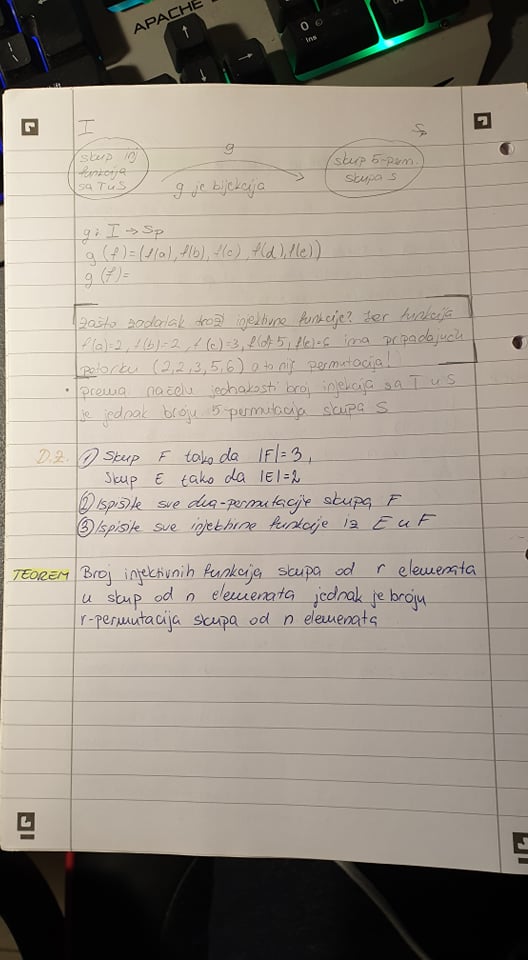 APACHE
0
Ins
I
Sp
g
skup inj
funkcija
sa T u S
skup 5-perm.
skupa S
g je bijekcija
g: I → Sp
g(f)=(f(a), f(b), f(c), f(d), f(e))
g(f)=
zašto zadatak traži injektivne funkcije? Jer funkcija
f(a)=2, f(b)=2, f(c)=3, f(d)=5, f(e)=6 ima pripadajuću
petorku (2,2,3,5,6) a to nije permutacija!
• prema načelu jednakosti broj injekcija sa T u S
je jednak broju 5-permutacija skupa S
D.Z. ① Skup F tako da |F|=3,
Skup E tako da |E|=2
② Ispišite sve dva-permutacije skupa F
③ Ispišite sve injektivne funkcije iz E u F
TEOREM Broj injektivnih funkcija skupa od r elemenata
u skup od n elemenata jednak je broju
r-permutacija skupa od n elemenata